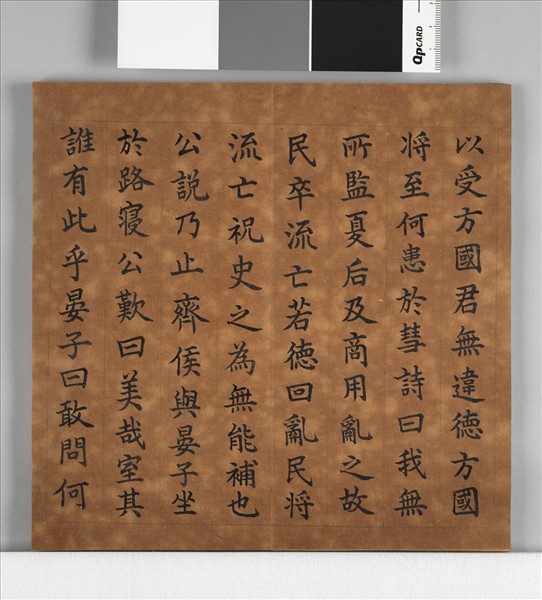 QpCARD
以受方國君無違德方國
将至何患於彗詩曰我無
所監夏后及商用亂之故
民卒流亡若德回亂民将
流亡祝史之為無能補也
公説乃止齊侯與晏子坐
於路寝公歎曰美哉室其
誰有此乎晏子曰敢問何